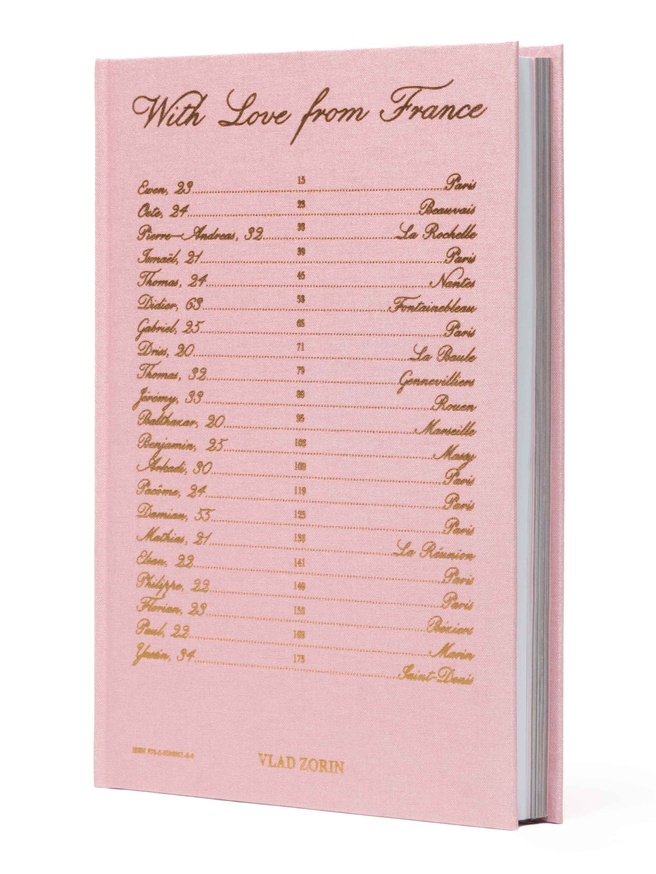 With Love from France
Ewen, 23 15 Paris
24 23 Beauvais
Pierre-Andreas, 32 33 La Rochelle
Ismaël, 21 39 Paris
Thomas, 24 45 Nantes
Didier, 63 53 Fontainebleau
Gabriel, 25 65 Paris
Dries, 20 71 La Baule
Thomas, 32 79 Gennevilliers
Jérémy, 33 Rouen
Balthazar, 20 95 Marseille
Benjamin, 25 103 Massy
Arkadi, 30 109 Paris
Pacôme, 24 119 Paris
Damian, 55 125 Paris
Mathias, 21 133 La Réunion
Elian, 22 141 Paris
Philippe, 22 149 Paris
Florian, 23 Béziers
Paul, 22 Marin
34 175 Saint-Denis
ISBN
VLAD ZORIN